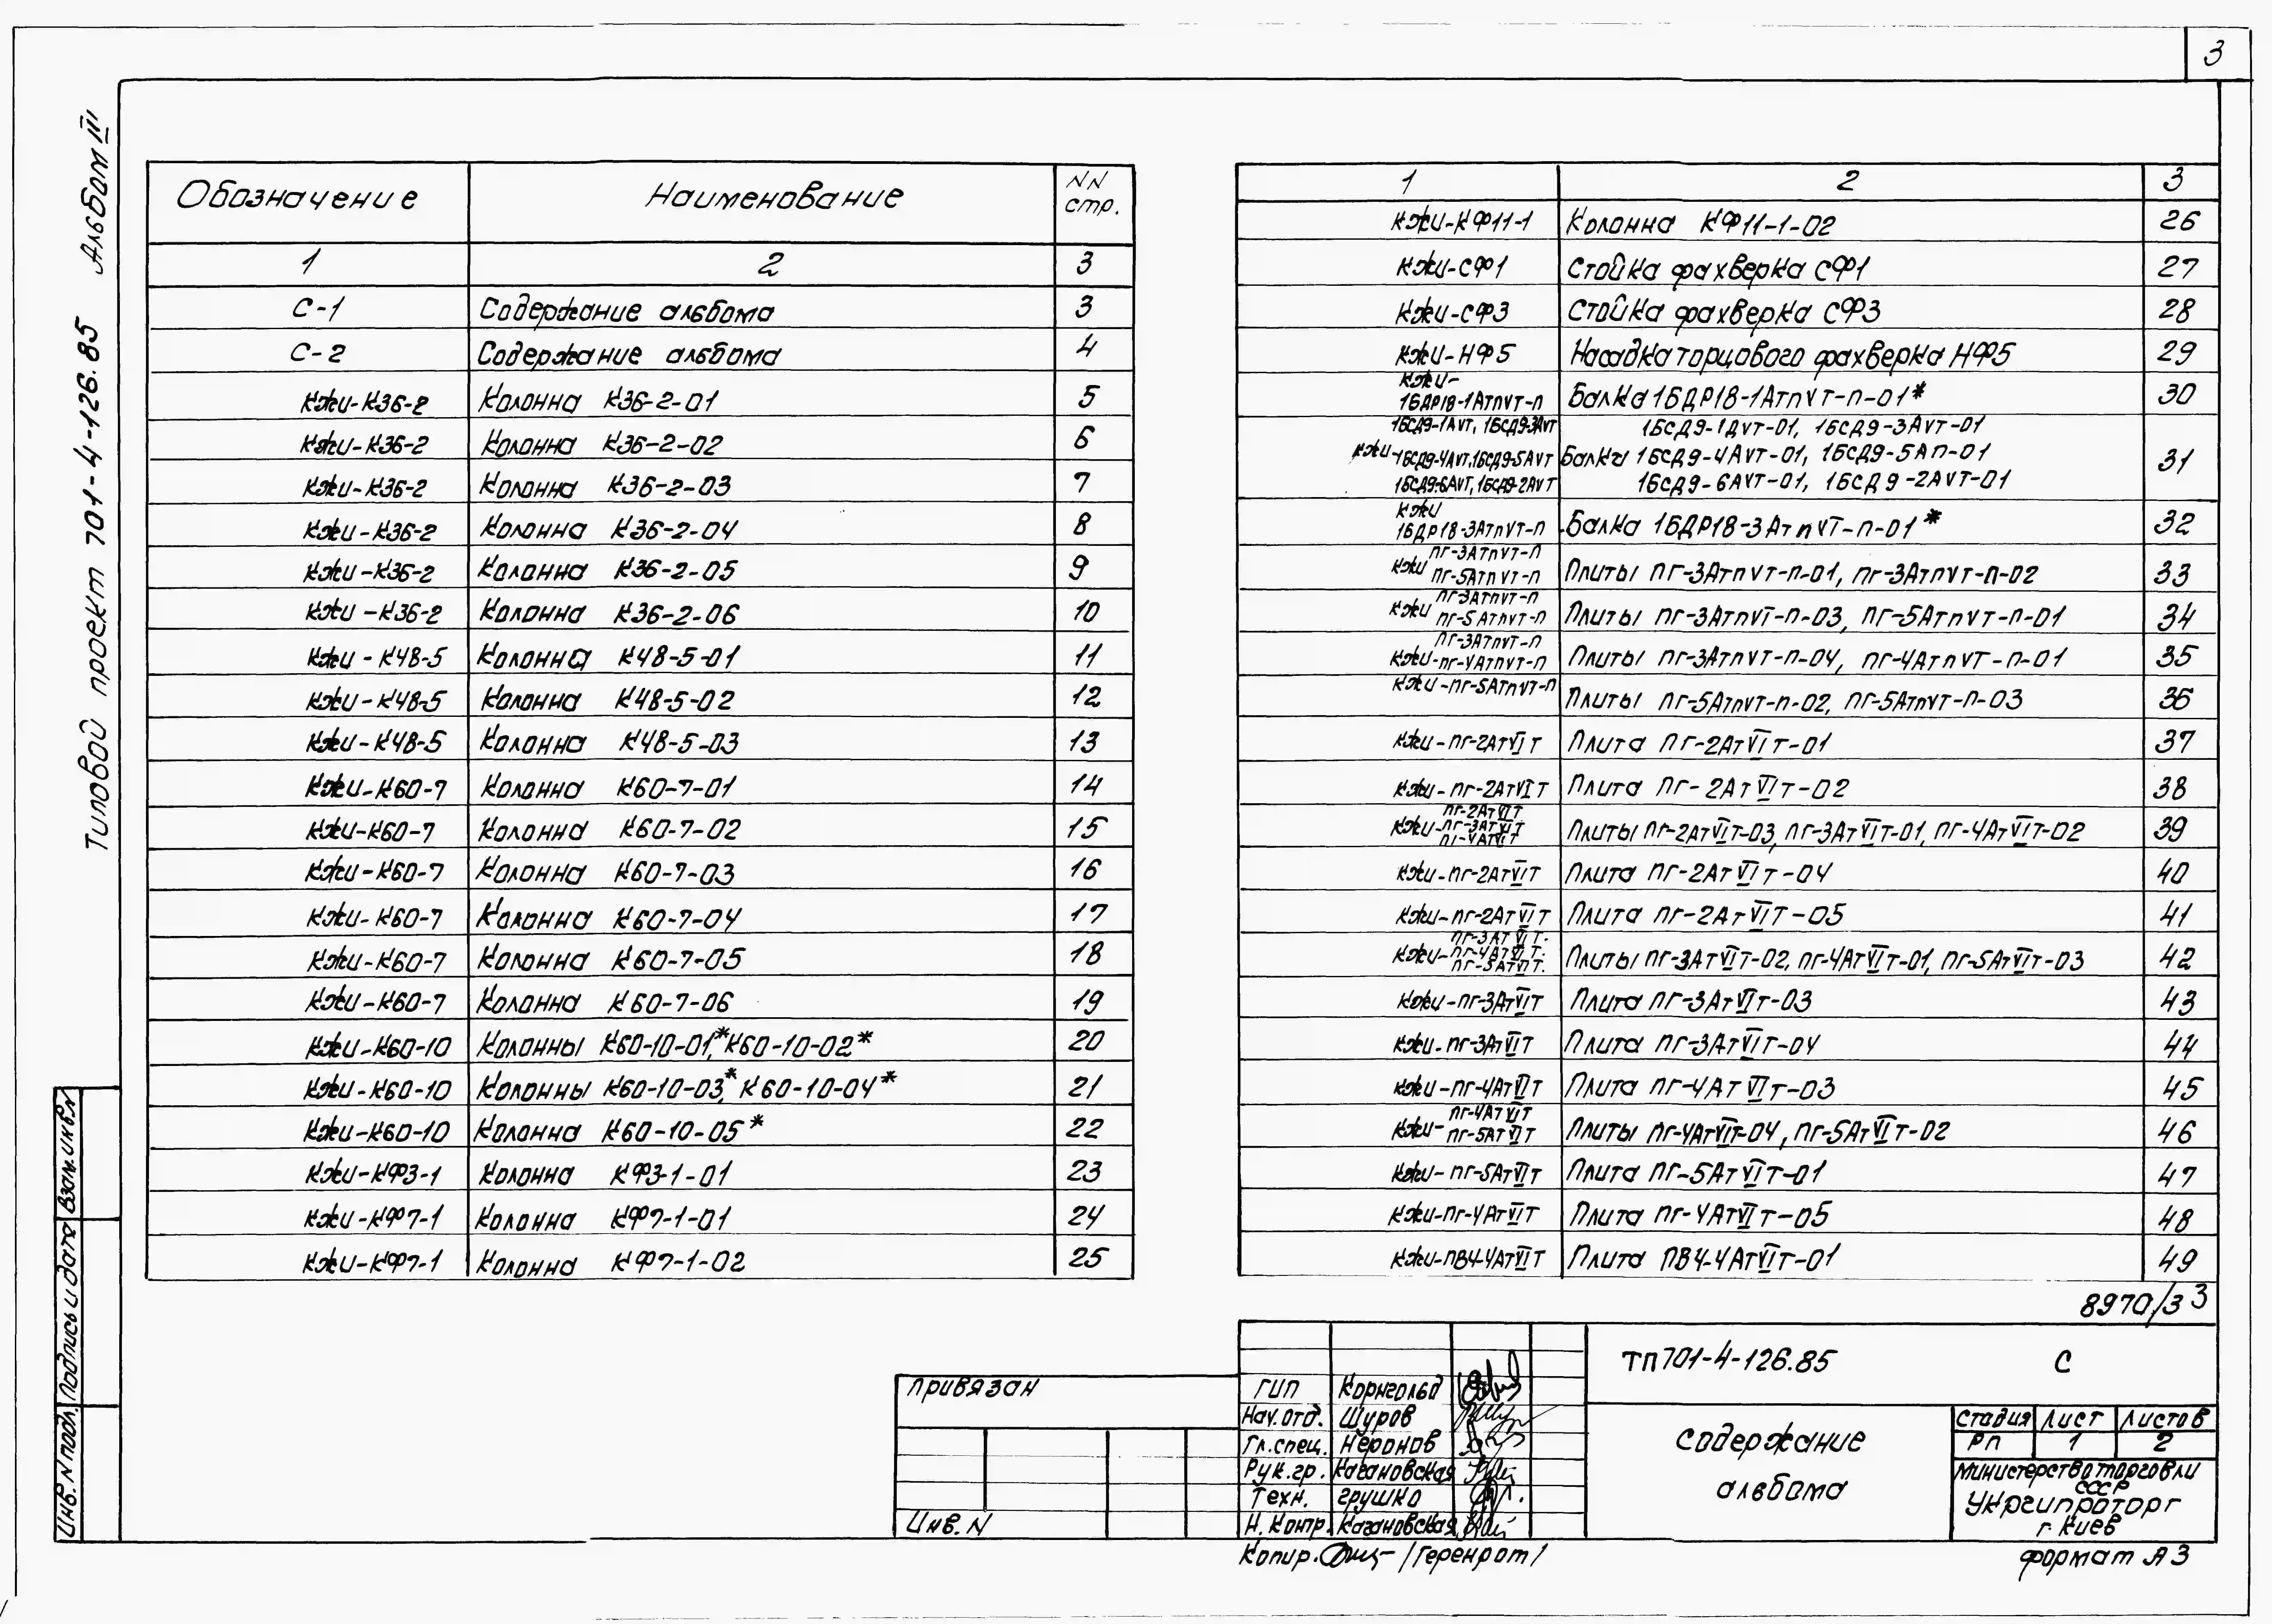 3
Типовой проект 701-4-126.85 Альбом III
Обозначение Наименование NN стр.
1 2 3
С-1 Содержание альбома 3
С-2 Содержание альбома 4
КЖИ-К36-2 Колонна К36-2-01 5
КЖИ-К36-2 Колонна К36-2-02 6
КЖИ-К36-2 Колонна К36-2-03 7
КЖИ-К36-2 Колонна К36-2-04 8
КЖИ-К36-2 Колонна К36-2-05 9
КЖИ-К36-2 Колонна К36-2-06 10
КЖИ-К48-5 Колонна К48-5-01 11
КЖИ-К48-5 Колонна К48-5-02 12
КЖИ-К48-5 Колонна К48-5-03 13
КЖИ-К60-7 Колонна К60-7-01 14
КЖИ-К60-7 Колонна К60-7-02 15
КЖИ-К60-7 Колонна К60-7-03 16
КЖИ-К60-7 Колонна К60-7-04 17
КЖИ-К60-7 Колонна К60-7-05 18
КЖИ-К60-7 Колонна К60-7-06 19
КЖИ-К60-10 Колонны К60-10-01*, К60-10-02* 20
КЖИ-К60-10 Колонны К60-10-03*, К60-10-04* 21
КЖИ-К60-10 Колонна К60-10-05* 22
КЖИ-КФ3-1 Колонна КФ3-1-01 23
КЖИ-КФ7-1 Колонна КФ7-1-01 24
КЖИ-КФ7-1 Колонна КФ7-1-02 25
1 2 3
КЖИ-КФ11-1 Колонна КФ11-1-02 26
КЖИ-СФ1 Стойка фахверка СФ1 27
КЖИ-СФ3 Стойка фахверка СФ3 28
КЖИ-НФ5 Насадка торцового фахверка НФ5 29
КЖИ-
1БДР18-1АтпVТ-П Балка 1БДР18-1АтпVТ-П-01* 30
1БСД9-1АVТ, 1БСД9-3АVТ 1БСД9-1АVТ-01, 1БСД9-3АVТ-01
КЖИ-1БСД9-4АVТ, 1БСД9-5АVТ Балки 1БСД9-4АVТ-01, 1БСД9-5АП-01 31
1БСД9-6АVТ, 1БСД9-2АVТ 1БСД9-6АVТ-01, 1БСД9-2АVТ-01
КЖИ
1БДР18-3АтпVТ-П Балка 1БДР18-3АтпVТ-П-01* 32
ПГ-3АтпVТ-П
КЖИ ПГ-5АтпVТ-П Плиты ПГ-3АтпVТ-П-01, ПГ-3АтпVТ-П-02 33
ПГ-3АтпVТ-П
КЖИ ПГ-5АтпVТ-П Плиты ПГ-3АтпVТ-П-03, ПГ-5АтпVТ-П-01 34
ПГ-3АтпVТ-П
КЖИ-ПГ-4АтпVТ-П Плиты ПГ-3АтпVТ-П-04, ПГ-4АтпVТ-П-01 35
КЖИ-ПГ-5АтпVТ-П Плиты ПГ-5АтпVТ-П-02, ПГ-5АтпVТ-П-03 36
КЖИ-ПГ-2АтVIТ Плита ПГ-2АтVIТ-01 37
КЖИ-ПГ-2АтVIТ Плита ПГ-2АтVIТ-02 38
ПГ-2АтVIТ
КЖИ-ПГ-3АтVIТ Плиты ПГ-2АтVIТ-03, ПГ-3АтVIТ-01, ПГ-4АтVIТ-02 39
ПГ-4АтVIТ
КЖИ-ПГ-2АтVIТ Плита ПГ-2АтVIТ-04 40
КЖИ-ПГ-2АтVIТ Плита ПГ-2АтVIТ-05 41
ПГ-3АтVIТ.
КЖИ-ПГ-4АтVIТ. Плиты ПГ-3АтVIТ-02, ПГ-4АтVIТ-01, ПГ-5АтVIТ-03 42
ПГ-5АтVIТ.
КЖИ-ПГ-3АтVIТ Плита ПГ-3АтVIТ-03 43
КЖИ-ПГ-3АтVIТ Плита ПГ-3АтVIТ-04 44
КЖИ-ПГ-4АтVIТ Плита ПГ-4АтVIТ-03 45
ПГ-4АтVIТ
КЖИ-ПГ-5АтVIТ Плиты ПГ-4АтVIТ-04, ПГ-5АтVIТ-02 46
КЖИ-ПГ-5АтVIТ Плита ПГ-5АтVIТ-01 47
КЖИ-ПГ-4АтVIТ Плита ПГ-4АтVIТ-05 48
КЖИ-ПВ4-4АтVIТ Плита ПВ4-4АтVIТ-01 49
8970/3 3
Взам.инв.N
Подпись и дата
Инв.N подл.
Привязан
Инв.N
ГИП Корнгольд
Нач.отд. Шуров
Гл.спец. Неронов
Рук.гр. Кагановская
Техн. Грушко
Н.контр. Кагановская
ТП701-4-126.85 С
Содержание
альбома
Стадия Лист Листов
РП 1 2
Министерство торговли
СССР
Укргипроторг
г. Киев
Копир. /Геренрот/
Формат А3